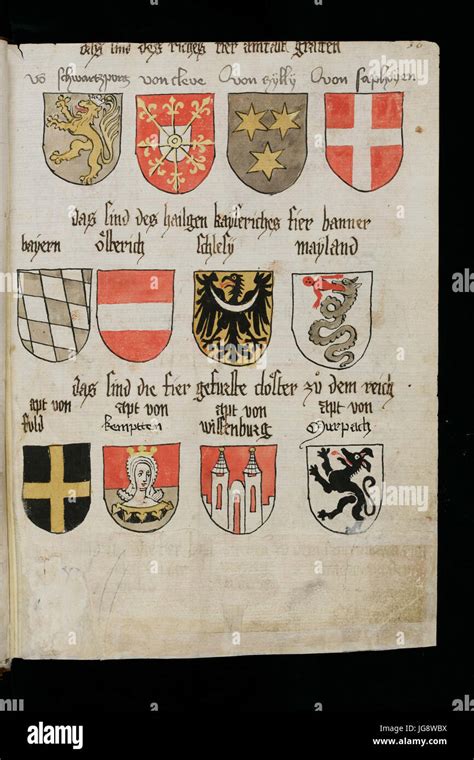 das sind des riches fier amtlut graffen
36
vo schwartzpurg von cleve von zylly von saphoyen
das sind des hailgen kayserriches fier banner
bayern österich schlesy mayland
das sind die fier gefurste closter zu dem reich
apt von fuld apt von kempten apt von wissenburg apt von murpach
alamy stock photo
a alamy
www.alamy.com
J G8WBX